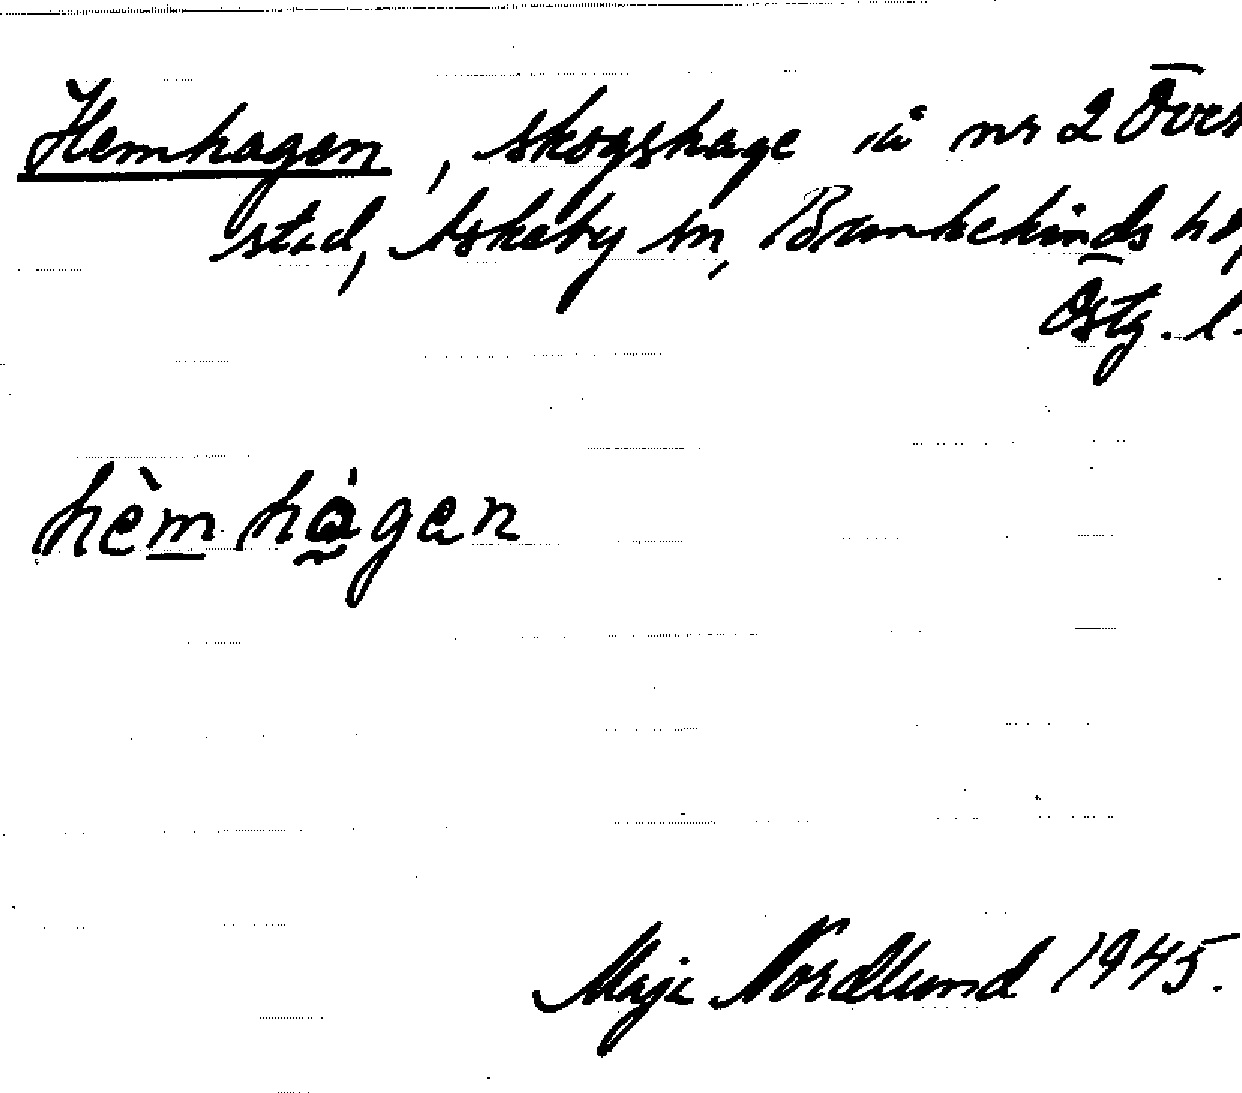 Hemhagen, skogshage å nr 2 Övers
stad, Askeby sn, Bankekinds hd,
Östg. l.
hèmhàgen
Maja Nordlund 1945.